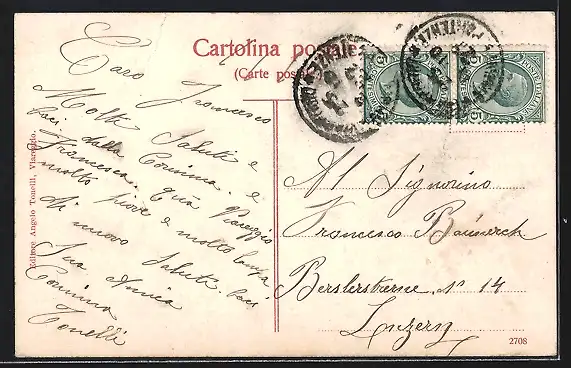 Cartolina postale
(Carte postale)
Caro Francesco
Molti saluti e
baci dalla Corinna e
Francesca. Qua Viareggio
molto piove e molto
di nuovo saluti baci
Sua Amica
Corinna
Tonelli
Editore Angelo Tonelli, Viareggio.
Al Signorino
Francesco
N° 14
Luzern
2708